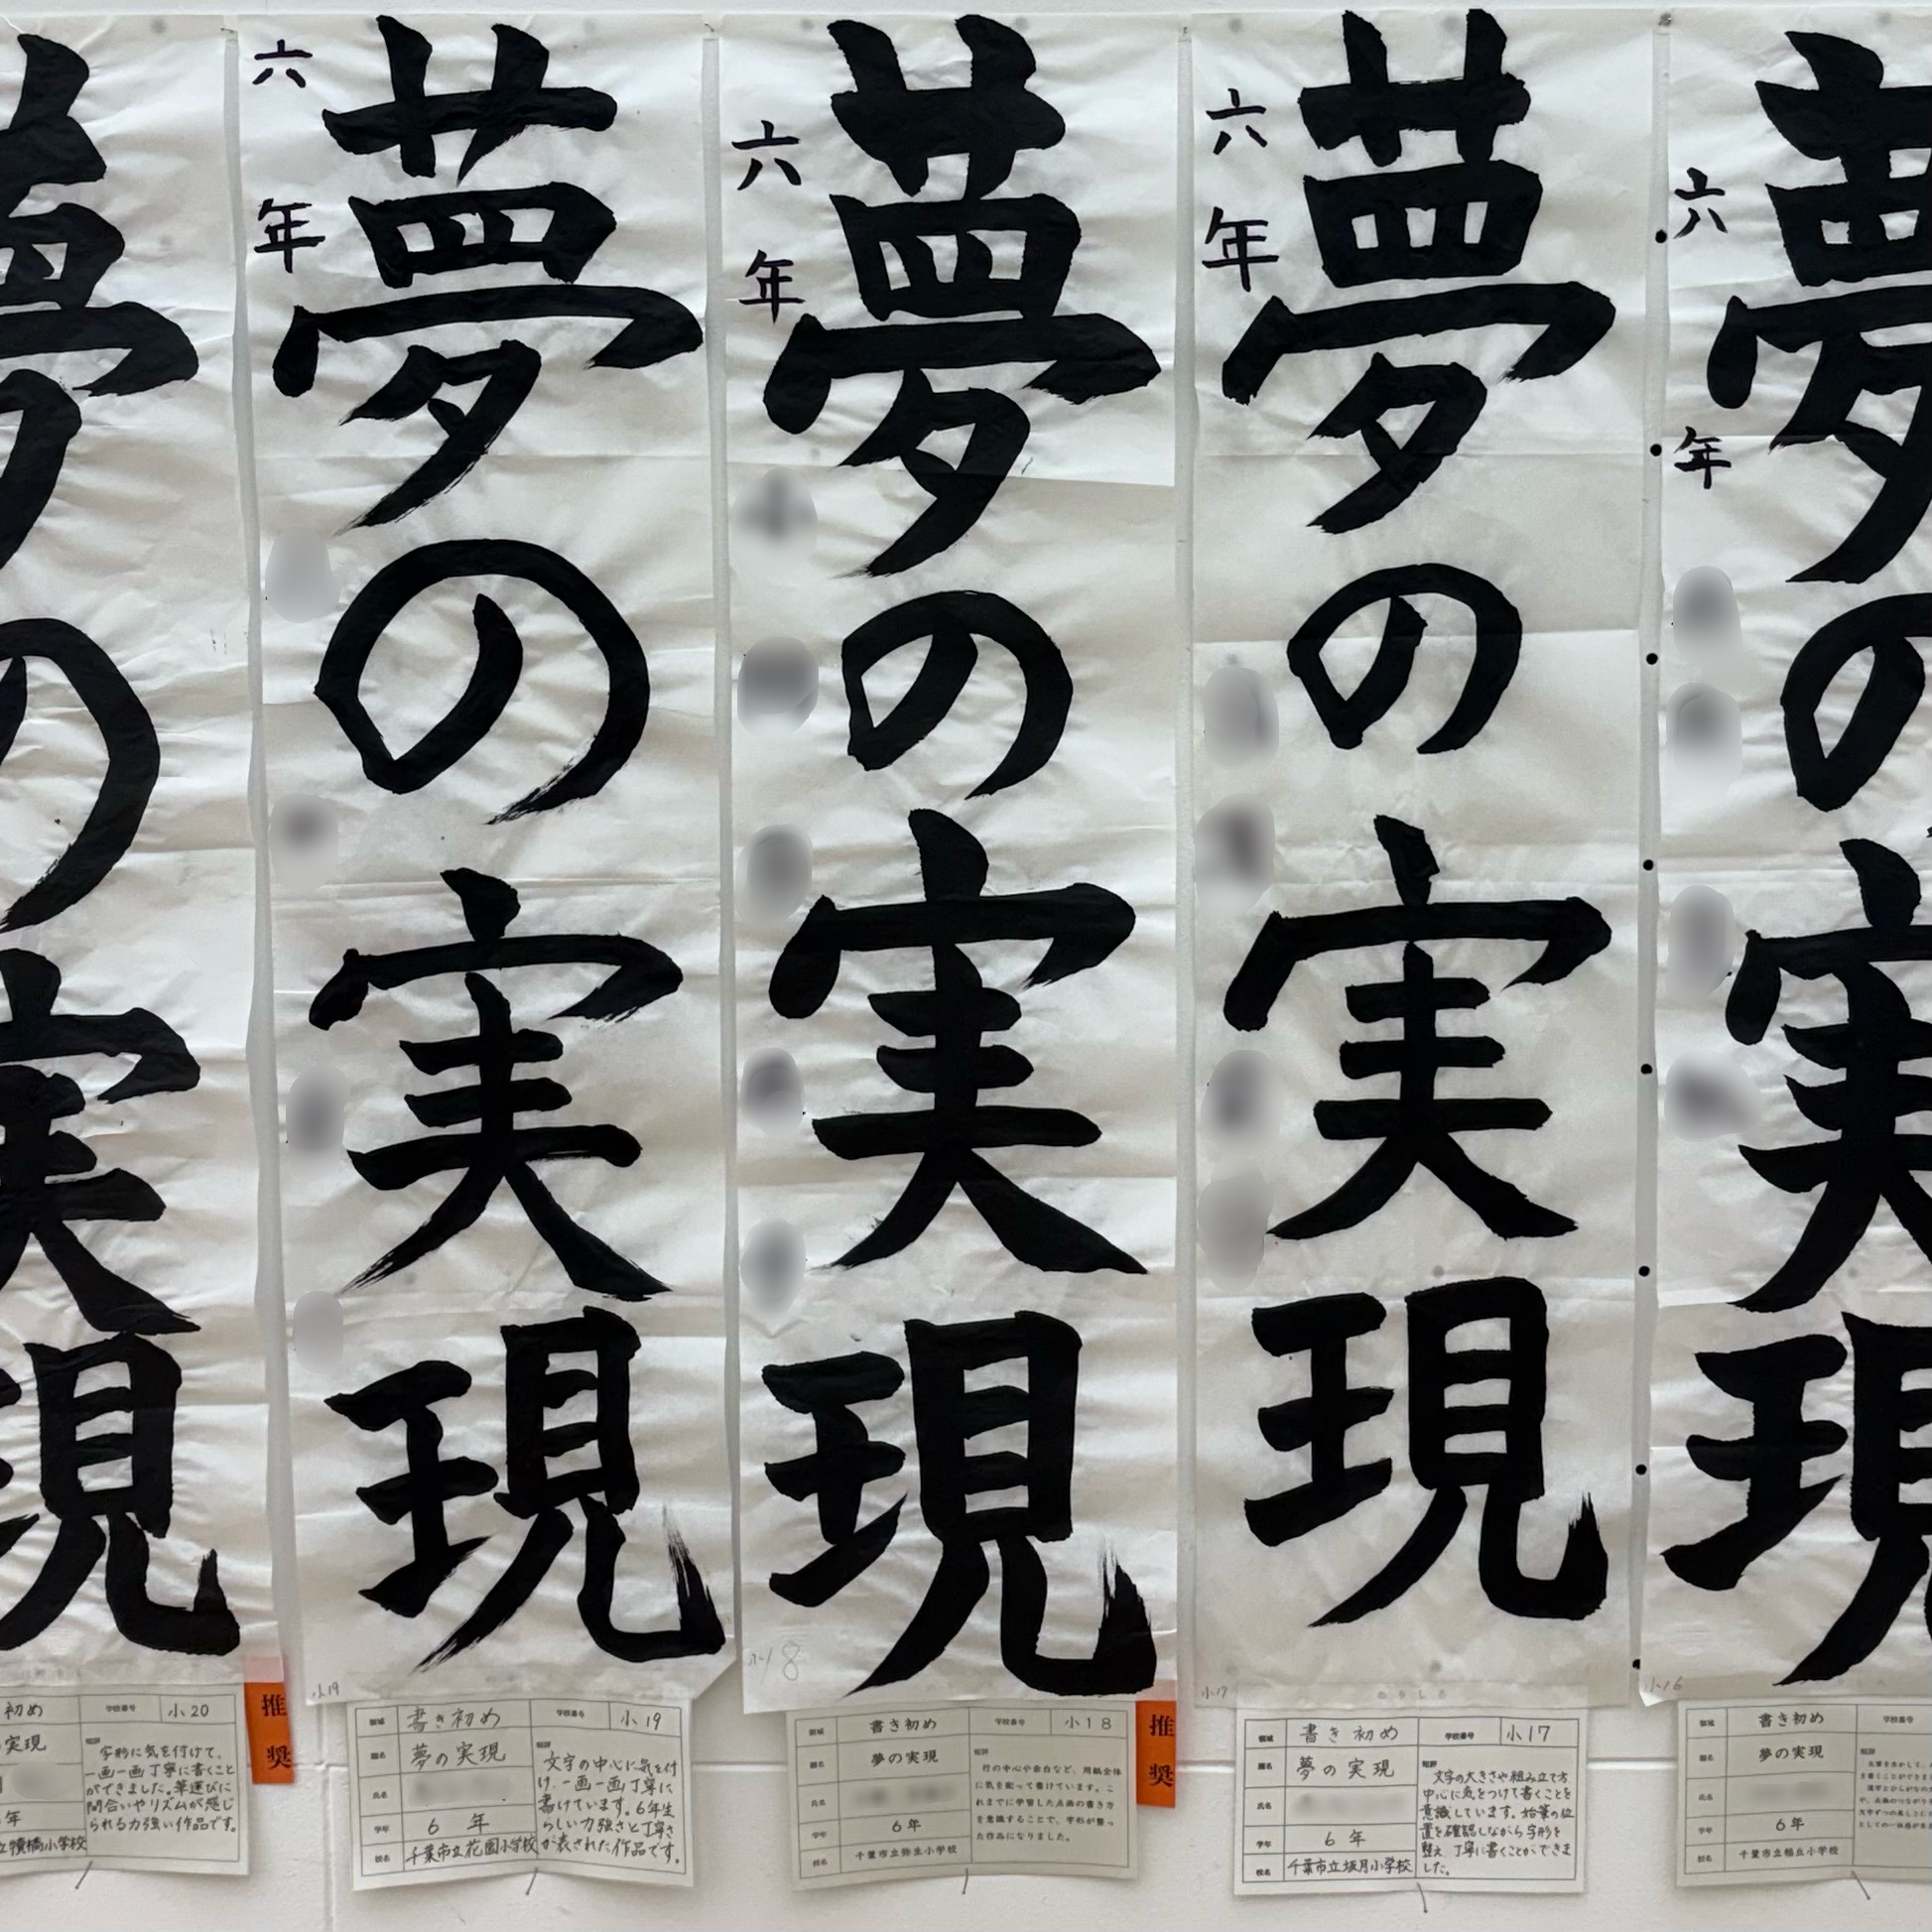 夢の実現
夢の実現
六年
夢の実現
六年
夢の実現
六年
夢の実現
六年
初め
学校番号
小20
の実現
短評
字形に気を付けて、
一画一画丁寧に書くこと
ができました。筆運びに
間合いやリズムが感じ
られる力強い作品です。
年
立犢橋小学校
推奨
小19
領域
書き初め
学校番号
小19
題名
夢の実現
短評
文字の中心に気を付
け、一画一画丁寧に
書けています。6年生
らしい力強さと丁寧さ
が表された作品です。
氏名
学年
6年
校名
千葉市立花園小学校
小18
領域
書き初め
学校番号
小18
題名
夢の実現
短評
行の中心や余白など、用紙全体
に気を配って書けています。こ
れまでに学習した点画の書き方
を意識することで、字形が整っ
た作品になりました。
氏名
学年
6年
校名
千葉市立弥生小学校
推奨
小17
領域
書き初め
学校番号
小17
題名
夢の実現
短評
文字の大きさや組み立て方
中心に気をつけて書くことを
意識しています。始筆の位
置を確認しながら字形を
整え、丁寧に書くことができま
した。
氏名
学年
6年
校名
千葉市立坂月小学校
小16
領域
書き初め
学校番号
題名
夢の実現
短評
氏名
学年
6年
校名